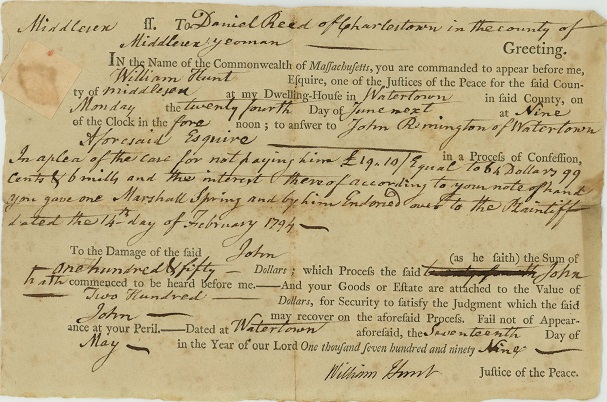 Middlesex ss. To Daniel Reed of Charlestown in the county of
Middlesex yeoman Greeting.
IN the Name of the Commonwealth of Massachusetts, you are commanded to appear before me,
William Hunt Esquire, one of the Justices of the Peace for the said Coun-
ty of middlesex at my Dwelling-House in Watertown in said County, on
Monday the twenty fourth Day of June next at Nine
of the Clock in the fore noon; to answer to John Remington of Watertown
Aforesaid Esquire in a Process of Confession,
In a plea of the case for not paying him £19.10/ Equal to 64 Dollars 99
cents & 6 mills and the interest thereof according to your note of hand
you gave one Marshall Spring and by him Endorsed over to the Plaintiff
dated the 14th day of February 1794 —
To the Damage of the said John (as he saith) the Sum of
one hundred & fifty Dollars; which Process the said John
hath commenced to be heard before me.—And your Goods or Estate are attached to the Value of
Two Hundred Dollars, for Security to satisfy the Judgment which the said
John — may recover on the aforesaid Process. Fail not of Appear-
ance at your Peril.—Dated at Watertown aforesaid, the Seventeenth Day of
May — in the Year of our Lord One thousand seven hundred and ninety Nine —
William Hunt Justice of the Peace.